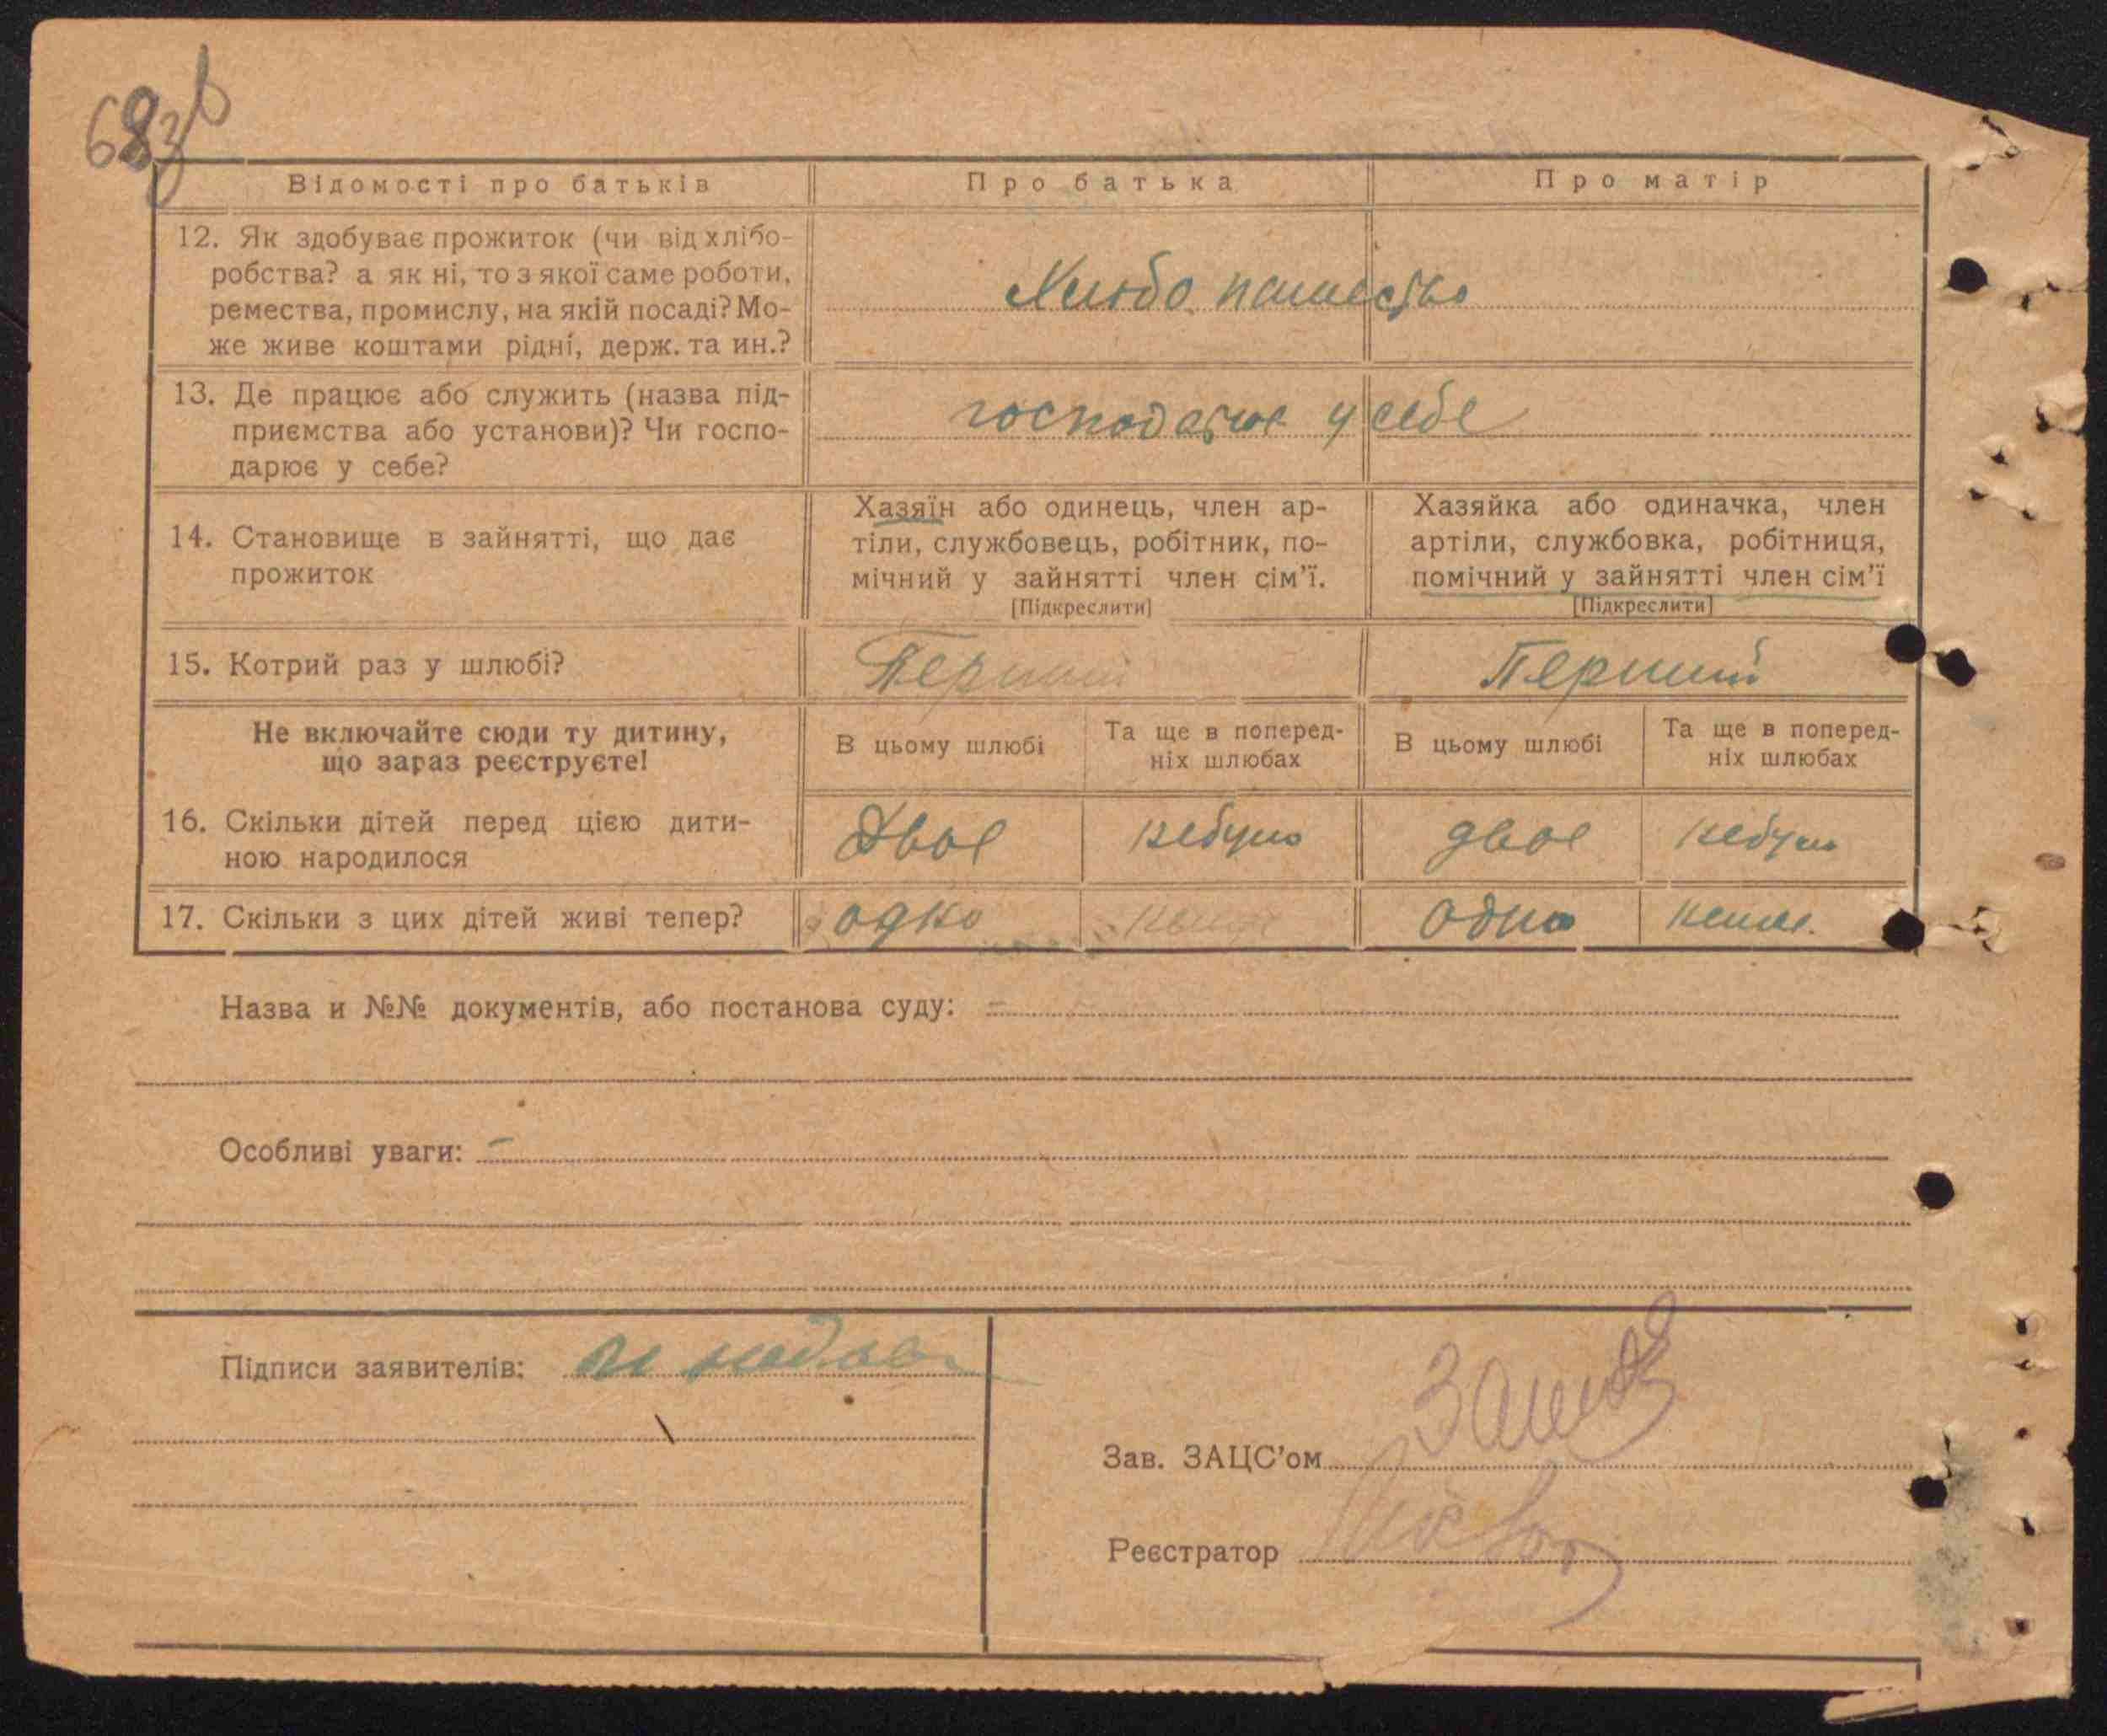 683
Відомості про батьків Про батька Про матір
12. Як здобуває прожиток (чи від хлібо-
робства? а як ні, то з якої саме роботи,
ремества, промислу, на якій посаді? Мо-
же живе коштами рідні, держ. та ин.?
13. Де працює або служить (назва під-
приємства або установи)? Чи госпо-
дарює у себе?
у себе
14. Становище в зайнятті, що дає
прожиток
Хазяїн або одинець, член ар-
тіли, службовець, робітник, по-
мічний у зайнятті член сім'ї.
[Підкреслити]
Хазяйка або одиначка, член
артіли, службовка, робітниця,
помічний у зайнятті член сім'ї
[Підкреслити]
15. Котрий раз у шлюбі? Перший Перший
Не включайте сюди ту дитину,
що зараз реєструєте!
В цьому шлюбі
Та ще в поперед-
ніх шлюбах
В цьому шлюбі
Та ще в поперед-
ніх шлюбах
16. Скільки дітей перед цією дити-
ною народилося
Двоє небуло двоє небуло
17. Скільки з цих дітей живі тепер? одно одно
Назва и №№ документів, або постанова суду: –
Особливі уваги: –
Підписи заявителів:
Зав. ЗАЦС'ом
Реєстратор